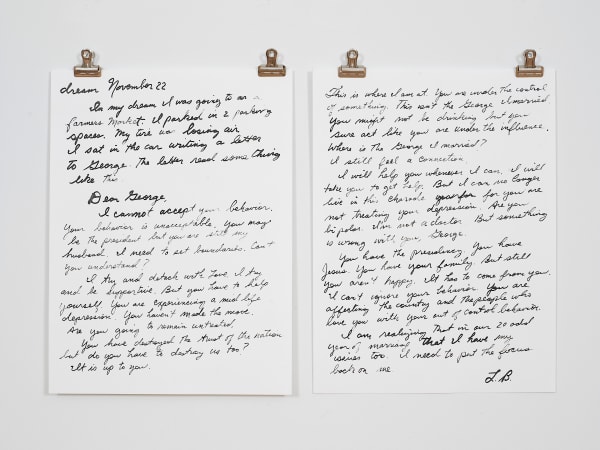 dream November 22
In my dream I was going to an
farmers Market. I parked in 2 parking
spaces. My tire was losing air
I sat in the car writing a letter
to George. The letter read something
like this
Dear George,
I cannot accept your behavior.
Your behavior is unacceptable. You may
be the president but you are still my
husband. I need to set boundaries. Can't
you understand?
I try and detach with love. I try
and be supportive. But you have to help
yourself. You are experiencing a mid life
depression. You haven't made the move.
Are you going to remain untreated.
You have destroyed the trust of the nation
but do you have to destroy us too?
It is up to you.
This is where I am at. You are under the control
of something. This isn't the George I married
You might not be drinking but you
sure act like you are under the influence.
Where is the George I married?
I still feel a connection.
I will help you whenever I can. I will
take you to get help. But I can no longer
live in this charade for you are
not treating your depression. Are you
bipolar. I'm not a doctor. But something
is wrong with you, George.
You have the presidency, You have
Jesus. You have your family But still
you aren't happy. It has to come from you.
I can't ignore your behavior You are
affecting the country and the people who
love you with your out of control behavior.
I am realizing that in our 20 odd
years of marriage that I have my
issues too. I need to put the focus
back on me.
L.B.